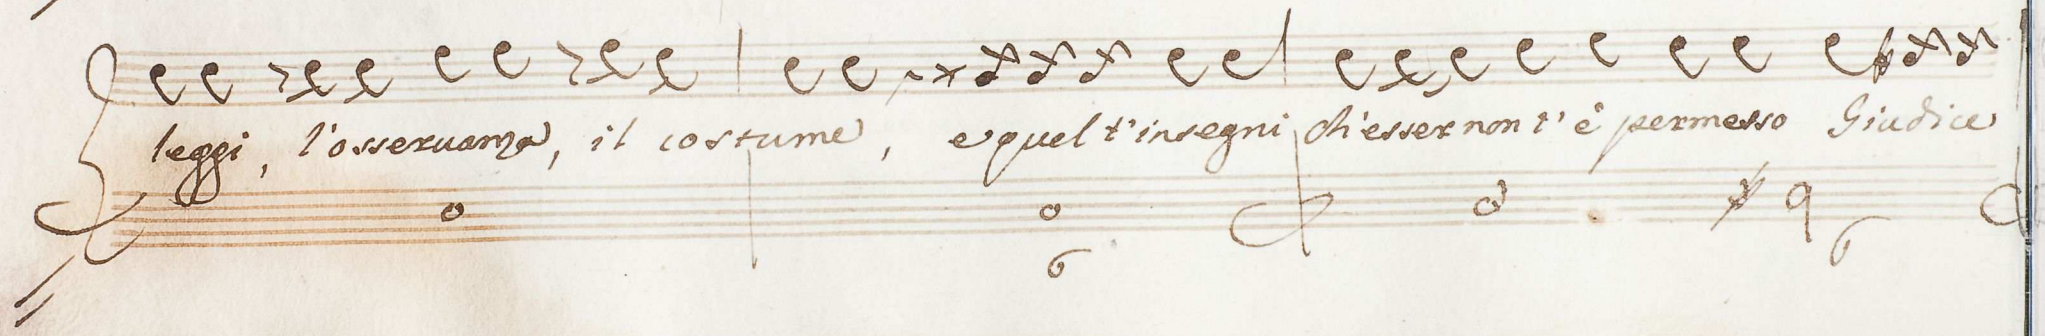 leggi, l'osseruanza, il costume, e quel t'insegni ch'esser non t'è permesso Giudice
6 6